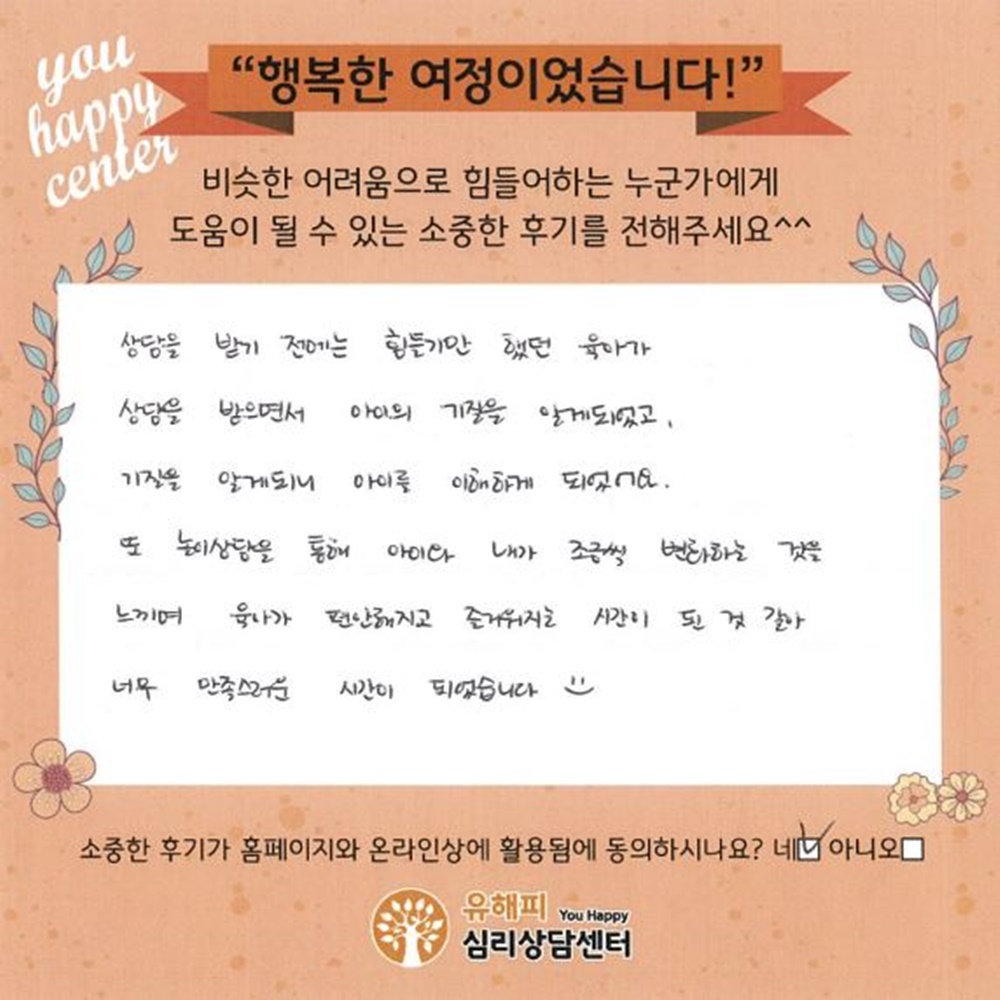 you
happy
center
“행복한 여정이었습니다!”
비슷한 어려움으로 힘들어하는 누군가에게
도움이 될 수 있는 소중한 후기를 전해주세요^^
상담을 받기 전에는 힘들기만 했던 육아가
상담을 받으면서 아이의 기질을 알게되었고,
기질을 알게되니 아이를 이해하게 되었어요.
또 놀이상담을 통해 아이와 내가 조금씩 변화하는 것을
느끼며 육아가 편안해지고 즐거워지는 시간이 된 것 같아
너무 만족스러운 시간이 되었습니다
소중한 후기가 홈페이지와 온라인상에 활용됨에 동의하시나요? 네 아니오
유해피 You Happy
심리상담센터